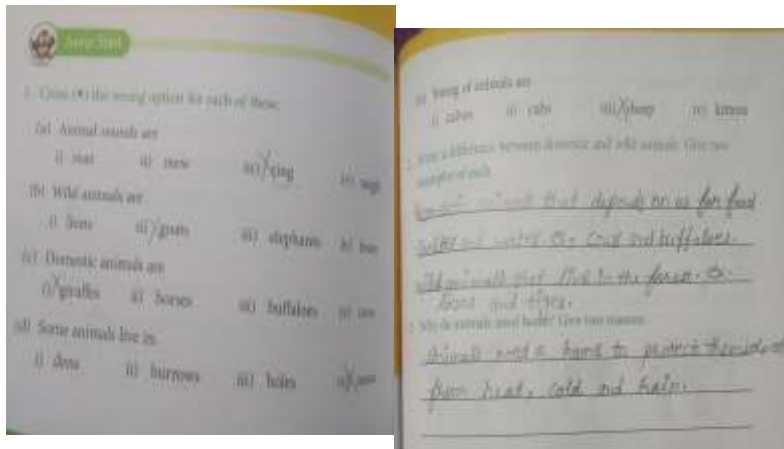 Jump Start
1. Cross (×) the wrong option for each of these.
(a) Animal sounds are
i) roar ii) mew iii) ring iv)
(b) Wild animals are
i) lions ii) goats iii) elephants iv)
(c) Domestic animals are
i) giraffes ii) horses iii) buffaloes iv)
(d) Some animals live in
i) dens ii) burrows iii) holes iv)
(e) Young of animals are
i) calves ii) cubs iii) sheep iv) kittens
2. Write a difference between domestic and wild animals. Give two
examples of each.
animals that depends on us for food
and Ex- cows and buffaloes.
Wild animals that live in the forest. Ex-
lions and tiger.
3. Why do animals need home? Give two reasons.
Animals need a home to protect
from heat, cold and rain.